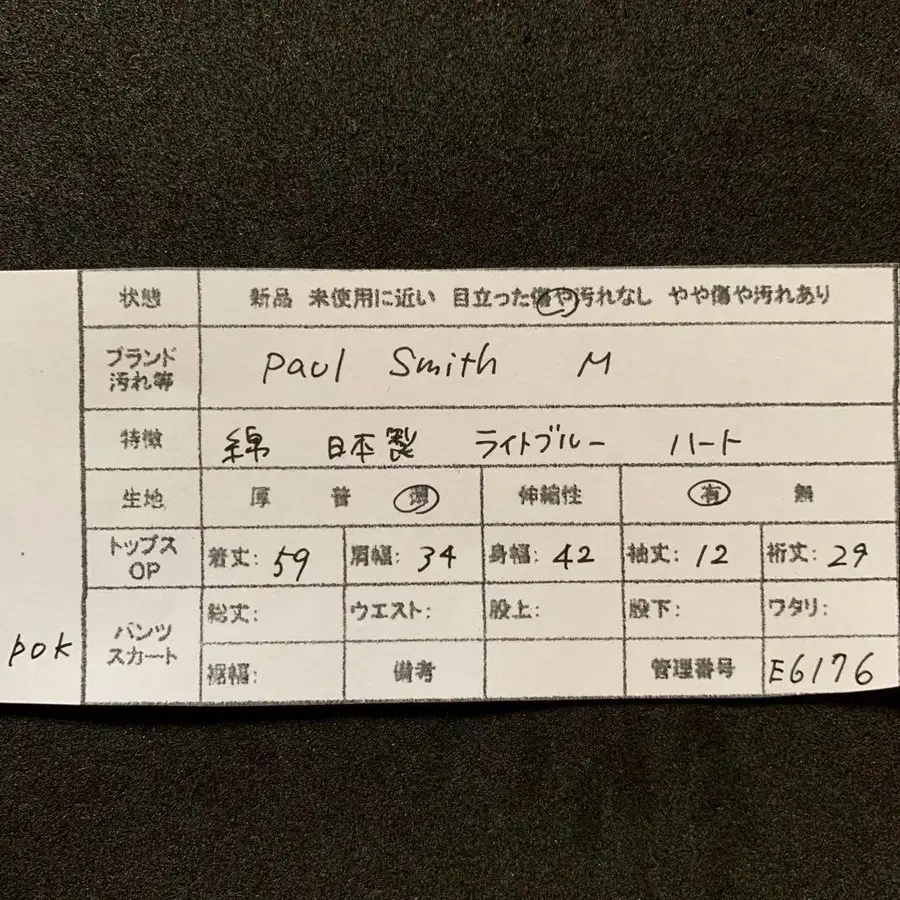 状態 新品 未使用に近い 目立った傷や汚れなし やや傷や汚れあり
ブランド
汚れ等
Paul Smith M
特徴 綿 日本製 ライトブルー ハート
生地 厚 普 薄 伸縮性 有 無
トップス
OP
着丈: 59 肩幅: 34 身幅: 42 袖丈: 12 裄丈: 29
パンツ
スカート
総丈: ウエスト: 股上: 股下: ワタリ:
裾幅: 備考 管理番号 E6176
pok